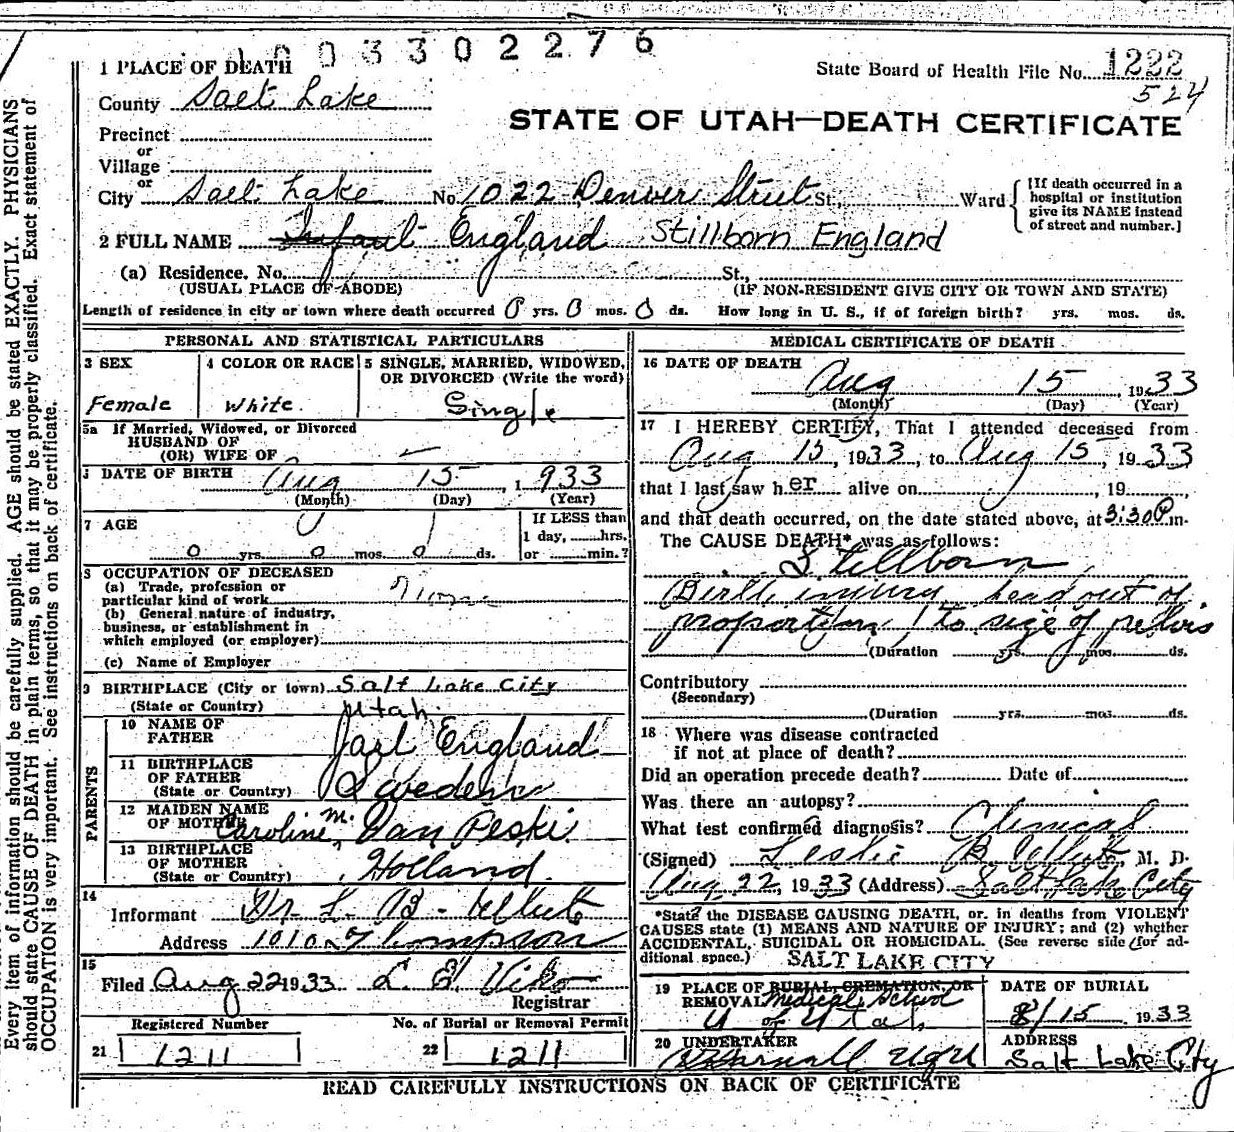 003302276
1 PLACE OF DEATH
State Board of Health File No. 1222
524
County Salt Lake
STATE OF UTAH—DEATH CERTIFICATE
Precinct
or
Village
or
City Salt Lake No. 1022 Denver Street St., Ward
[If death occurred in a
hospital or institution
give its NAME instead
of street and number.]
2 FULL NAME Infant England Stillborn England
(a) Residence. No. St.,
(USUAL PLACE OF ABODE) (IF NON-RESIDENT GIVE CITY OR TOWN AND STATE)
Length of residence in city or town where death occurred 0 yrs. 0 mos. 0 ds. How long in U. S., if of foreign birth? yrs. mos. ds.
PERSONAL AND STATISTICAL PARTICULARS
3 SEX
Female
4 COLOR OR RACE
White.
5 SINGLE, MARRIED, WIDOWED,
OR DIVORCED (Write the word)
Single
5a If Married, Widowed, or Divorced
HUSBAND OF
(OR) WIFE OF
DATE OF BIRTH Aug 15 1933
(Month) (Day) (Year)
7 AGE
0 yrs. 0 mos. 0 ds.
If LESS than
1 day, hrs.
or min.?
8 OCCUPATION OF DECEASED
(a) Trade, profession or
particular kind of work None
(b) General nature of industry,
business, or establishment in
which employed (or employer)
(c) Name of Employer
9 BIRTHPLACE (City or town) Salt Lake City
(State or Country) Utah.
PARENTS
10 NAME OF
FATHER England
11 BIRTHPLACE
OF FATHER
(State or Country) Sweden
12 MAIDEN NAME
OF MOTHER Caroline M. Van Peski
13 BIRTHPLACE
OF MOTHER
(State or Country) Holland.
14
Informant Dr. L. B. White
Address 1010 Thompson
15
Filed Aug 22 1933 L. E. Viko
Registrar
Registered Number
21 1211
No. of Burial or Removal Permit
22 1211
MEDICAL CERTIFICATE OF DEATH
16 DATE OF DEATH
Aug 15, 1933
(Month) (Day) (Year)
17 I HEREBY CERTIFY, That I attended deceased from
Aug 15, 1933, to Aug 15, 1933
that I last saw her alive on , 19 ,
and that death occurred, on the date stated above, at 3:30 P m.
The CAUSE DEATH* was as follows:
Stillborn
Birth injury head out of
proportion to size of pelvis
(Duration yrs. mos. ds.
Contributory
(Secondary)
(Duration yrs. mos. ds.
18 Where was disease contracted
if not at place of death?
Did an operation precede death? Date of
Was there an autopsy?
What test confirmed diagnosis? Clinical
(Signed) Leslie B. White, M. D.
Aug 22, 1933 (Address) Salt Lake City
*State the DISEASE CAUSING DEATH, or, in deaths from VIOLENT
CAUSES state (1) MEANS AND NATURE OF INJURY; and (2) whether
ACCIDENTAL, SUICIDAL OR HOMICIDAL. (See reverse side for ad-
ditional space.) SALT LAKE CITY
19 PLACE OF BURIAL, CREMATION, OR
REMOVAL Medical School
U of Utah
DATE OF BURIAL
8/15 1933
20 UNDERTAKER
ADDRESS
Salt Lake City
READ CAREFULLY INSTRUCTIONS ON BACK OF CERTIFICATE
Every item of information should be carefully supplied. AGE should be stated EXACTLY. PHYSICIANS
should state CAUSE OF DEATH in plain terms, so that it may be properly classified. Exact statement of
OCCUPATION is very important. See instructions on back of certificate.